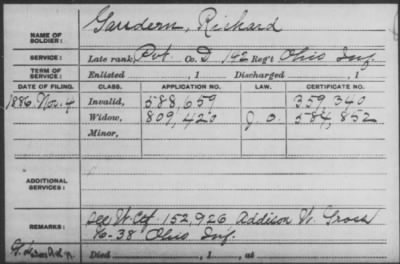 NAME OF SOLDIER: Gaudern, Richard
SERVICE: Late rank, Pvt. Co. D, 192 Reg't Ohio Inf.
TERM OF SERVICE: Enlisted , 1 Discharged , 1
DATE OF FILING. CLASS. APPLICATION NO. LAW. CERTIFICATE NO.
1886 Nov. 4 Invalid, 588,659 359,340
Widow, 809,420 584,852
Minor,
ADDITIONAL SERVICES:
REMARKS: See W. Ctf 152,926 Addison W. Gross
38 Ohio Inf.
Died , 1 , at